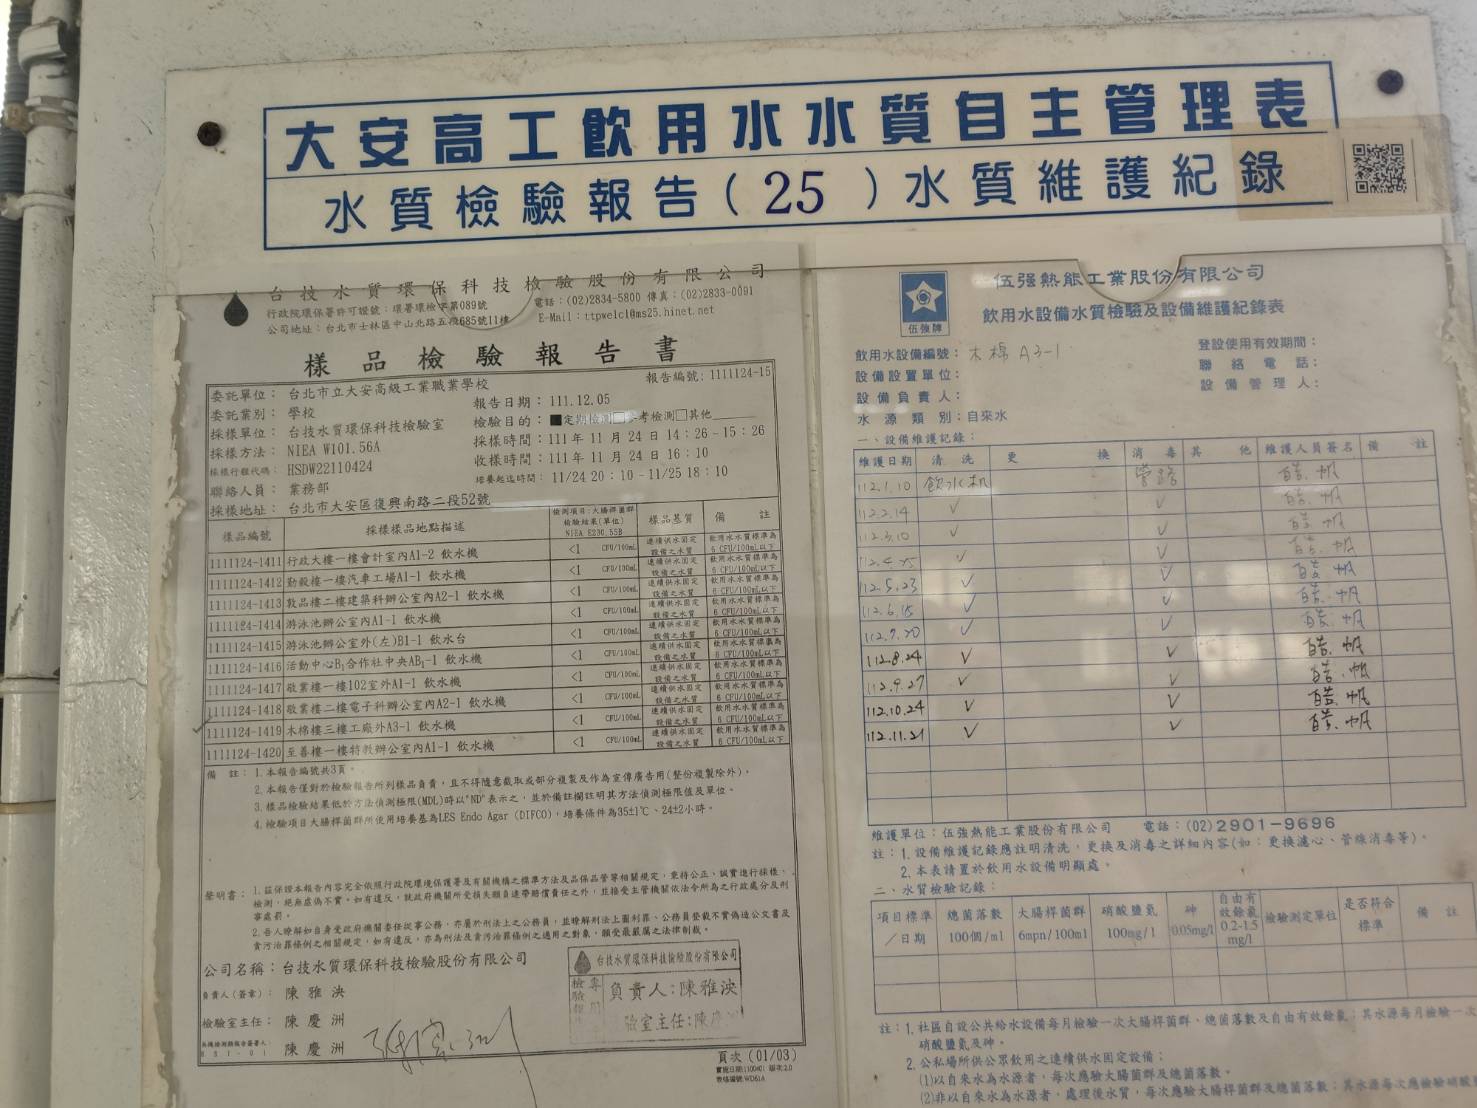 大安高工飲用水水質自主管理表
水質檢驗報告(25)水質維護紀錄
台技水質環保科技檢驗股份有限公司
行政院環保署許可證號：環署環檢字第089號
電話：(02)2834-5800 傳真：(02)2833-0091
公司地址：台北市士林區中山北路五段685號11樓
E-Mail：ttpwelcl@ms25.hinet.net
樣品檢驗報告書
報告編號：1111124-15
委託單位：台北市立大安高級工業職業學校
委託業別：學校
報告日期：111.12.05
採樣單位：台技水質環保科技檢驗室
檢驗目的：■定期檢測□參考檢測□其他
採樣方法：NIEA W101.56A
採樣時間：111年11月24日14：26-15：26
採樣行程代碼：HSDW22110424
收樣時間：111年11月24日16：10
聯絡人員：業務部
培養起迄時間：11/24 20：10-11/25 18：10
採樣地址：台北市大安區復興南路二段52號
樣品編號 採樣樣品地點描述 檢測項目：大腸桿菌群 檢驗結果(單位) NIEA E230.55B 樣品基質 備註
1111124-1411 行政大樓一樓會計室內A1-2 飲水機 <1 CFU/100mL 連續供水固定設備之水質 飲用水水質標準為6 CFU/100mL以下
1111124-1412 勤毅樓一樓汽車工場A1-1 飲水機 <1 CFU/100mL 連續供水固定設備之水質 飲用水水質標準為6 CFU/100mL以下
1111124-1413 敦品樓二樓建築科辦公室內A2-1 飲水機 <1 CFU/100mL 連續供水固定設備之水質 飲用水水質標準為6 CFU/100mL以下
1111124-1414 游泳池辦公室內A1-1 飲水機 <1 CFU/100mL 連續供水固定設備之水質 飲用水水質標準為6 CFU/100mL以下
1111124-1415 游泳池辦公室外(左)B1-1 飲水台 <1 CFU/100mL 連續供水固定設備之水質 飲用水水質標準為6 CFU/100mL以下
1111124-1416 活動中心B1合作社中央AB1-1 飲水機 <1 CFU/100mL 連續供水固定設備之水質 飲用水水質標準為6 CFU/100mL以下
1111124-1417 敬業樓一樓102室外A1-1 飲水機 <1 CFU/100mL 連續供水固定設備之水質 飲用水水質標準為6 CFU/100mL以下
1111124-1418 敬業樓二樓電子科辦公室內A2-1 飲水機 <1 CFU/100mL 連續供水固定設備之水質 飲用水水質標準為6 CFU/100mL以下
1111124-1419 木棉樓三樓工廠外A3-1 飲水機 <1 CFU/100mL 連續供水固定設備之水質 飲用水水質標準為6 CFU/100mL以下
1111124-1420 至善樓一樓特教辦公室內A1-1 飲水機 <1 CFU/100mL 連續供水固定設備之水質 飲用水水質標準為6 CFU/100mL以下
備註：1.本報告編號共3頁。
2.本報告僅對於檢驗報告所列樣品負責，且不得隨意截取或部分複製及作為宣傳廣告用(整份複製除外)。
3.樣品檢驗結果低於方法偵測極限(MDL)時以"ND"表示之，並於備註欄註明其方法偵測極限值及單位。
4.檢驗項目大腸桿菌群所使用培養基為LES Endo Agar (DIFCO)，培養條件為35±1℃、24±2小時。
聲明書：1.茲保證本報告內容完全依照行政院環境保護署及有關機構之標準方法及品保品管等相關規定，秉持公正、誠實進行採樣、
檢測，絕無虛偽不實。如有違反，就政府機關所受損失願負連帶賠償責任之外，並接受主管機關依法令所為之行政處分及刑
事處罰。
2.吾人瞭解如自身受政府機關委任從事公務，亦屬於刑法上之公務員，並瞭解刑法上圖利罪、公務員登載不實偽造公文書及
貪污治罪條例之相關規定，如有違反，亦為刑法及貪污治罪條例之適用之對象，願受最嚴厲之法律制裁。
公司名稱：台技水質環保科技檢驗股份有限公司
負責人(簽章)：陳雅泱
檢驗室主任：陳慶洲
陳慶洲
台技水質環保科技檢驗股份有限公司
負責人：陳雅泱
驗室主任：陳
頁次(01/03)
伍强牌
伍强熱能工業股份有限公司
飲用水設備水質檢驗及設備維護紀錄表
飲用水設備編號：木棉 A3-1
登設使用有效期間：
設備設置單位：
聯絡電話：
設備負責人：
設備管理人：
水源類別：自來水
一、設備維護記錄：
維護日期 清洗 更換 消毒 其他 維護人員簽名 備註
112.1.10 飲水机 管路 皓.帆
112.2.14 ✓ ✓ 皓.帆
112.3.10 ✓ ✓ 皓.帆
112.4.25 ✓ ✓ 皓.帆
112.5.23 ✓ ✓ 皓.帆
112.6.15 ✓ ✓ 皓.帆
112.7.20 ✓ ✓ 皓.帆
112.8.24 ✓ ✓ 皓.帆
112.9.27 ✓ ✓ 皓.帆
112.10.24 ✓ ✓ 皓.帆
112.11.21 ✓ ✓ 皓.帆
維護單位：伍強熱能工業股份有限公司 電話：(02)2901-9696
註：1.設備維護記錄應註明清洗，更換及消毒之詳細內容(如：更換濾心、管線消毒等)。
2.本表請置於飲用水設備明顯處。
二、水質檢驗記錄：
項目標準／日期 總菌落數100個/ml 大腸桿菌群6mpn/100ml 硝酸鹽氮100mg/l 砷0.05mg/l 自由有效餘氯0.2-1.5mg/l 檢驗測定單位 是否符合標準 備註
註：1.社區自設公共給水設備每月檢驗一次大腸桿菌群、總菌落數及自由有效餘氯；其水源每月檢驗一次
硝酸鹽氮及砷。
2.公私場所供公眾飲用之連續供水固定設備：
(1)以自來水為水源者，每次應驗大腸桿菌群及總菌落數。
(2)非以自來水為水源者，處理後水質，每次應驗大腸桿菌群及總菌落數；其水源每次應檢驗硝酸